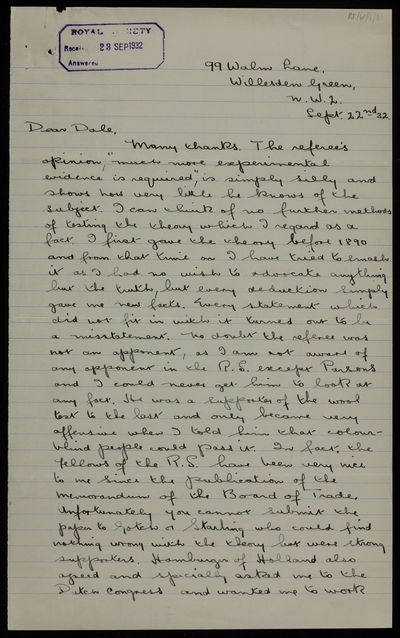 ROYAL SOCIETY
Received 23 SEP 1932
Answered
99 Walm Lane,
Willesden Green,
N.W.2.
Sept. 22nd 32
Dear Dale,
Many thanks. The referee's
opinion, "much more experimental
evidence is required," is simply silly and
shows how very little he knows of the
subject. I can think of no further methods
of testing the theory which I regard as a
fact. I first gave the theory before 1890
and from that time on I have tried to smash
it as I had no wish to advocate anything
but the truth, but every deduction simply
gave me new facts. Every statement which
did not fit in with it turned out to be
a misstatement. No doubt the referee was
not an opponent, as I am not aware of
any opponent in the R.S. except Parsons
and I could never get him to look at
any fact. He was a supporter of the wool
test to the last and only became very
offensive when I told him that colour-
blind people could pass it. In fact, the
Fellows of the R.S. have been very nice
to me since the publication of the
memorandum of the Board of Trade.
Unfortunately you cannot submit the
paper to Gotch or Starling who could find
nothing wrong with the theory but were strong
supporters. Hamburger of Holland also
agreed and specially asked me to the
Dutch Congress and wanted me to work